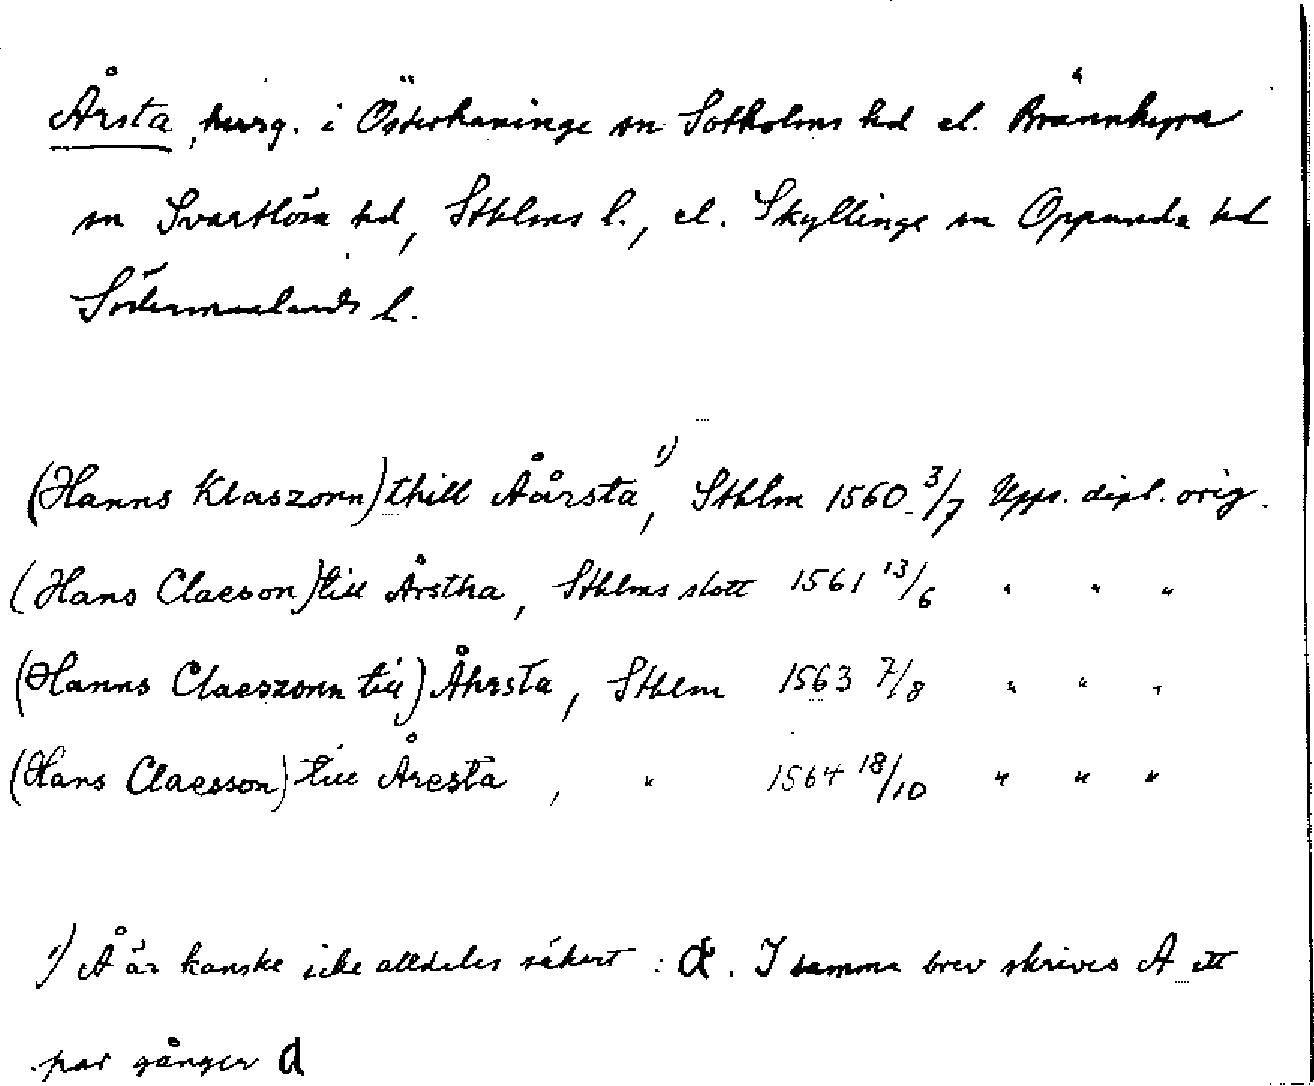 Årsta, herrg. i Österhaninge sn Sotholms hd el. Brännkyrka
sn Svartlösa hd, Sthlms l., el. Skyllinge sn Oppunda hd
Södermanlands l.
(Hanns Klaszonn) thill Åårsta¹⁾, Sthlm 1560 3/7 Upps. dipl. orig.
(Hans Claeson) till Årstha, Sthlms slott 1561 13/6 " " "
(Hanns Claeszonn till) Åhrsta, Sthlm 1563 7/8 " " "
(Hans Claesson) till Åresta, " 1564 18/10 " " "
¹⁾ Å är kanske icke alldeles säkert: a. I samma brev skrives A ett
par gånger a